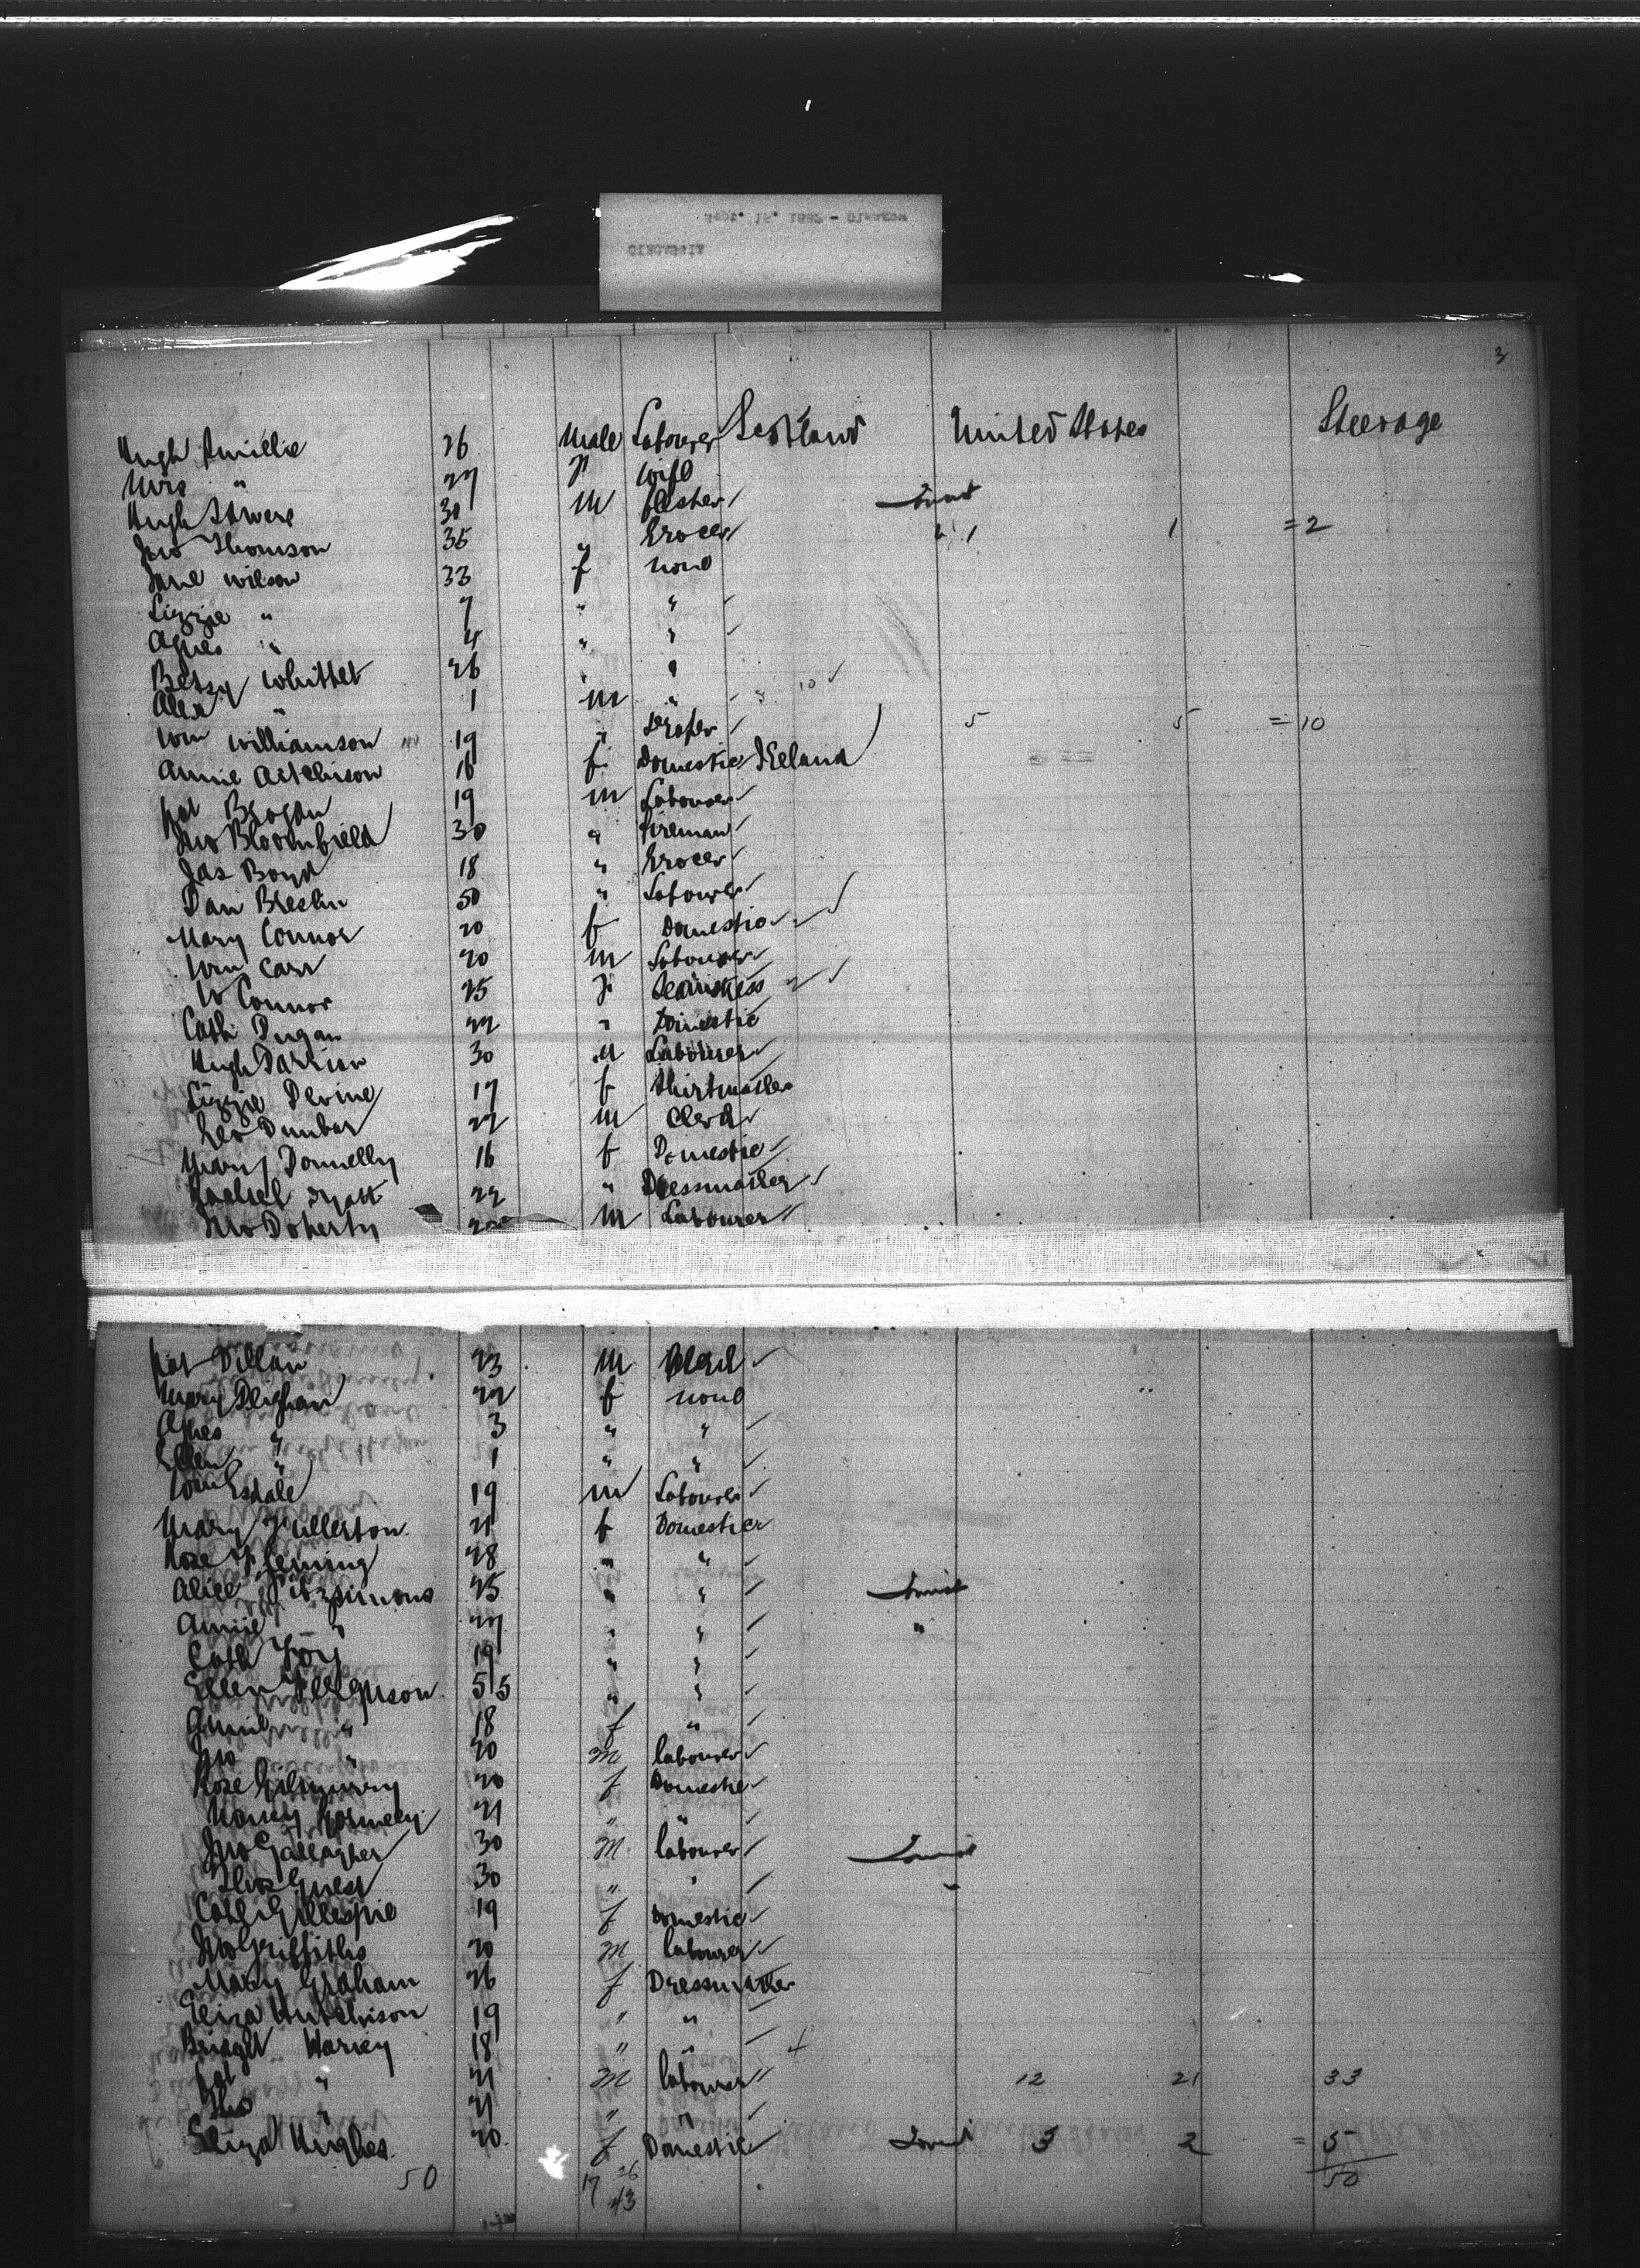 3
Hugh 26 Male Labourer Scotland United States Steerage
Mrs " 27 f wife
Hugh 30 m flesher
Jno Thomson 35 " Grocer " 1 1 = 2
Jane Wilson 33 f none
Lizzie " 7 " "
Agnes " 4 " "
Betsy Whittet 26 " "
Alex " 1 m " 10
Wm Williamson 19 " Draper 5 5 = 10
Annie Aitchison 18 f Domestic Ireland
Pat Brogan 19 m Labourer
Jno Bloomfield 30 " fireman
Jas Boyd 18 " Grocer
Dan Breslin 50 " Labourer
Mary Connor 20 f Domestic
Wm Carr 20 m Labourer
W Connor 25 f Seamstress
Cath Dugan 22 " Domestic
Hugh 30 m Labourer
Lizzie Devine 17 f Shirtmaker
Geo Dunbar 22 m Clerk
Mary Donnelly 16 f Domestic
22 " Dressmaker
Jno Doherty m Labourer
Pat Dillan 23 m Clerk
Mary Deighan 22 f none
Agnes " 3 " "
Ellen " 1 " "
Wm Esdale 19 m Labourer
Mary Fullerton 21 f Domestic
Rose Fleming 28 " "
Alice Fitzsimons 25 " "
Annie " 27 " " "
Cath Foy 19 " "
Ellen Ferguson 55 " "
Annie " 18 f "
Jno " 20 m labourer
Rose 20 f Domestic
Nancy Gormley 21 " "
Jno Gallagher 30 m labourer
Thos 30 " "
Cath Gillespie 19 f Domestic
Jno Griffiths 20 m labourer
Mary Graham 26 f Dressmaker
Eliza Hutchison 19 " "
Bridget Harvey 18 " "
Pat " 21 m labourer 12 21 33
" 21 " "
Eliza Hughes 20 f Domestic 3 2 = 5
50 17 26 50
43